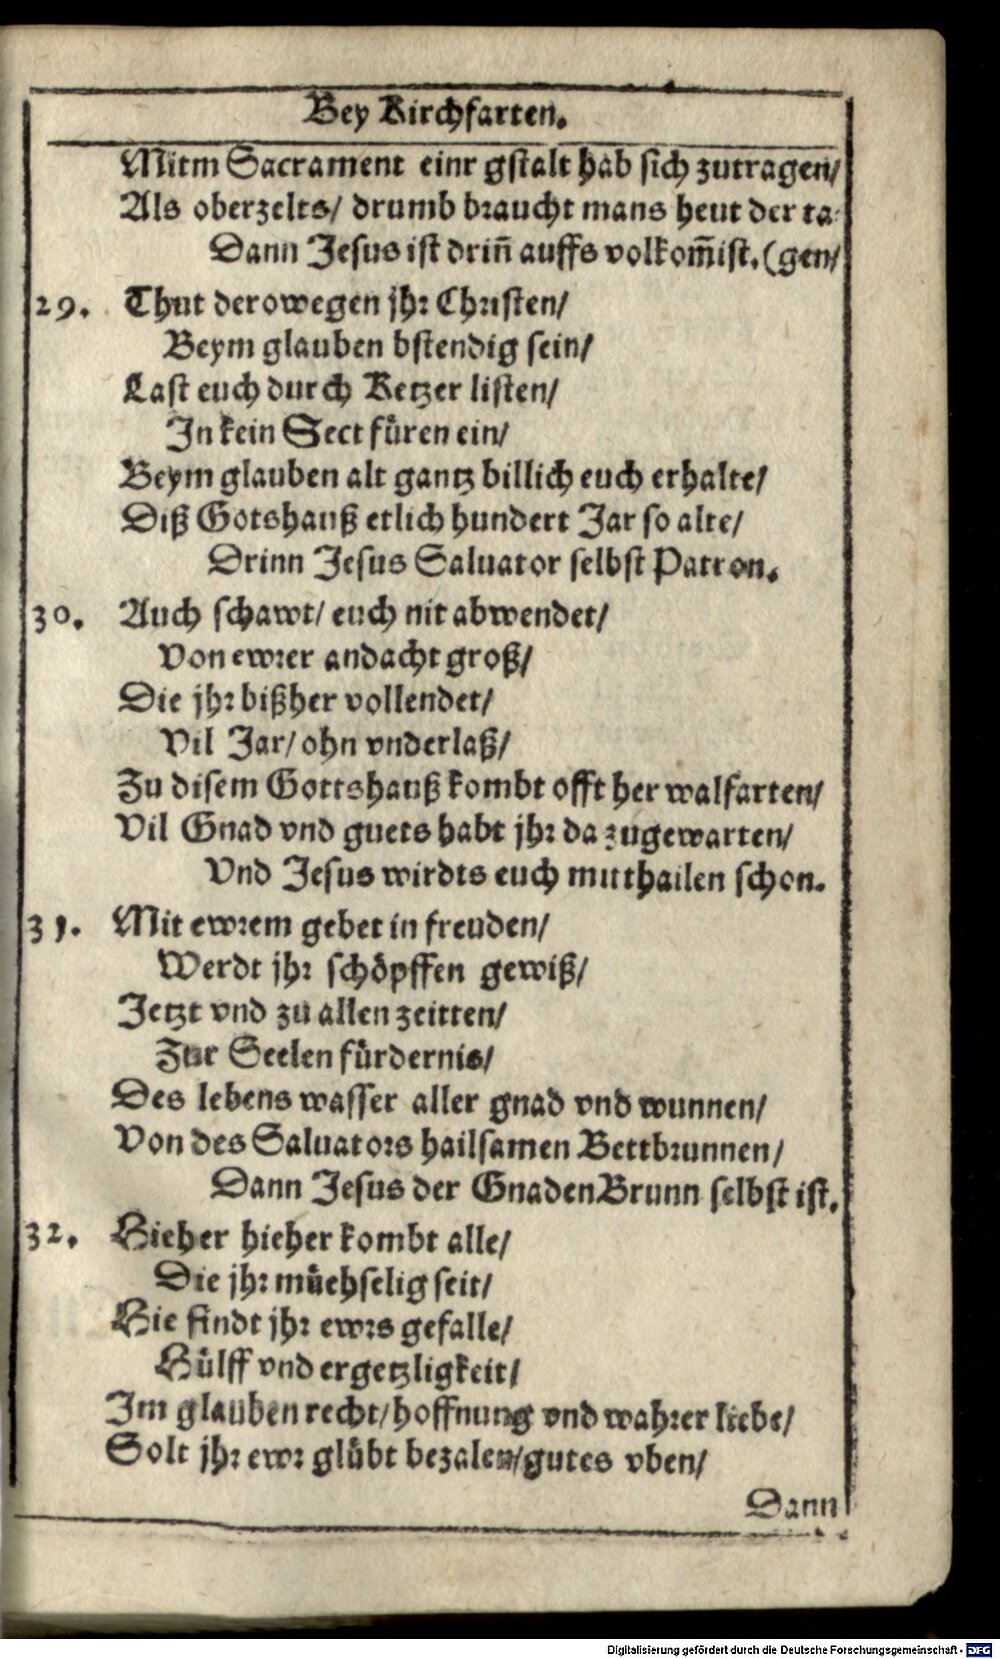 Bey Kirchfarten.
Mitm Sacrament einr gstalt hab sich zutragen/
Als oberzelts/ drumb braucht mans heut der ta-
Dann Jesus ist driñ auffs volkom̃ist. (gen/
29. Thut derowegen jhr Christen/
Beym glauben bstendig sein/
Last euch durch Ketzer listen/
In kein Sect füren ein/
Beym glauben alt gantz billich euch erhalte/
Diß Gotshauß etlich hundert Jar so alte/
Drinn Jesus Saluator selbst Patron.
30. Auch schawt/ euch nit abwendet/
Von ewrer andacht groß/
Die jhr bißher vollendet/
Vil Jar/ ohn vnderlaß/
Zu disem Gottshauß kombt offt her walfarten/
Vil Gnad vnd guets habt jhr da zugewarten/
Vnd Jesus wirdts euch mitthailen schon.
31. Mit ewrem gebet in freuden/
Werdt jhr schöpffen gewiß/
Jetzt vnd zu allen zeitten/
Zur Seelen fürdernis/
Des lebens wasser aller gnad vnd wunnen/
Von des Saluators hailsamen Bettbrunnen/
Dann Jesus der GnadenBrunn selbst ist.
32. Hieher hieher kombt alle/
Die jhr müehselig seit/
Hie findt jhr ewrs gefalle/
Hülff vnd ergetzligkeit/
Im glauben recht/ hoffnung vnd wahrer liebe/
Solt jhr ewr glübt bezalen/ gutes vben/
Dann
Digitalisierung gefördert durch die Deutsche Forschungsgemeinschaft - DFG